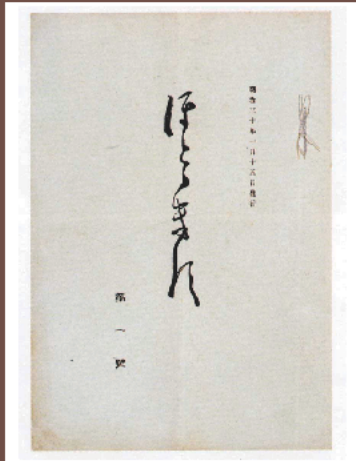 明治三十年一月十五日發行
ほとゝきす
第一號